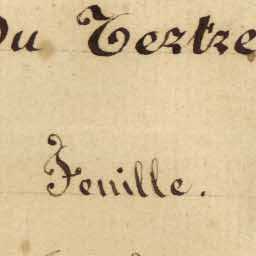 Du Tertre
Feuille.